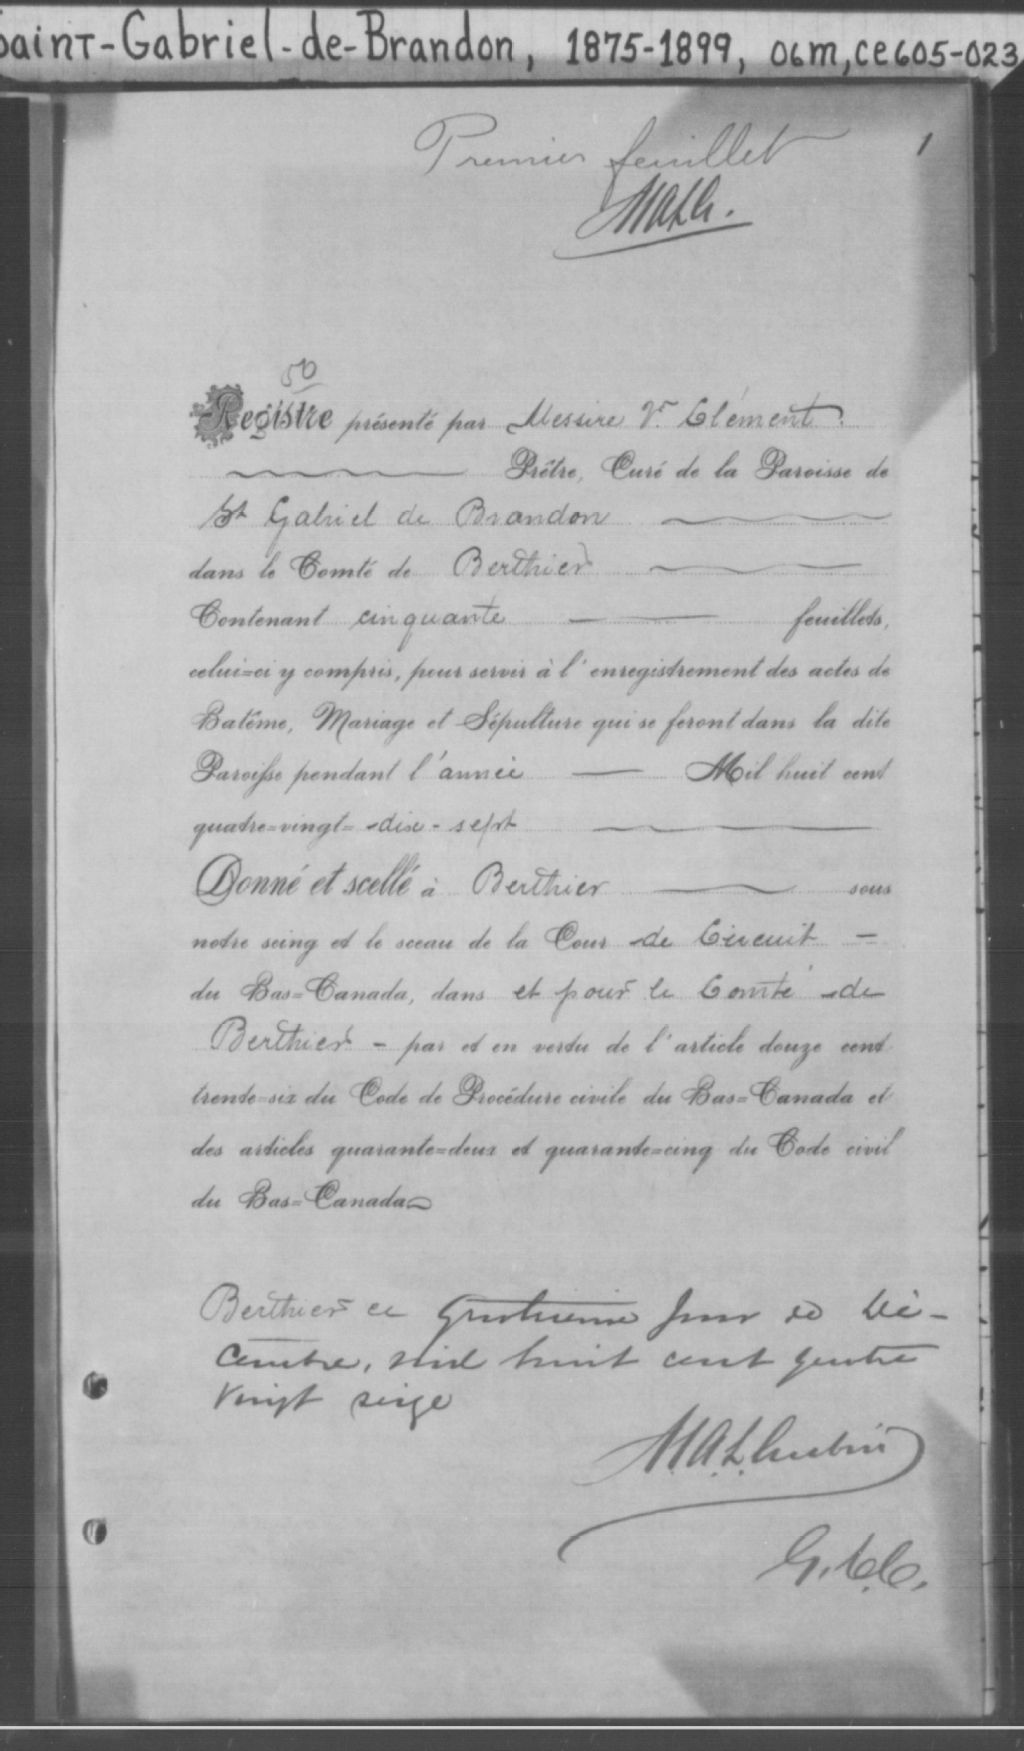 Saint-Gabriel-de-Brandon, 1875-1899, 06m, ce605-023
Premier feuillet 1
50
Registre présenté par Messire Vr Clément
Prêtre, Curé de la Paroisse de
St Gabriel de Brandon
dans le Comté de Berthier
Contenant cinquante feuillets,
celui=ci y compris, pour servir à l'enregistrement des actes de
Batême, Mariage et Sépulture qui se feront dans la dite
Paroisse pendant l'année Mil huit cent
quatre=vingt=dix-sept
Donné et scellé à Berthier sous
notre seing et le sceau de la Cour de Circuit
du Bas=Canada, dans et pour le Comté de
Berthier - par et en vertu de l'article douze cent
trente=six du Code de Procédure civile du Bas=Canada et
des articles quarante=deux et quarante=cinq du Code civil
du Bas=Canada
Berthier ce jour de Dé-
cembre, mil huit cent quatre
vingt seize
G.C.C.